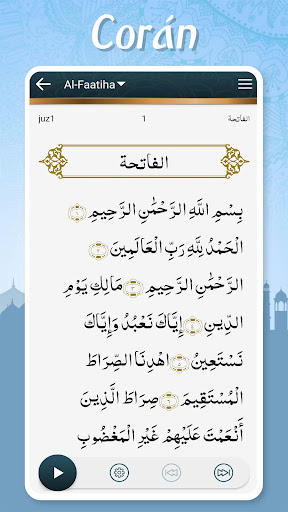 Corán
Al-Faatiha
juz1 1 الفاتحة
الفاتحة
بِسْمِ اللَّهِ الرَّحْمَٰنِ الرَّحِيمِ ۝١
الْحَمْدُ لِلَّهِ رَبِّ الْعَالَمِينَ ۝٢
الرَّحْمَٰنِ الرَّحِيمِ ۝٣ مَالِكِ يَوْمِ
الدِّينِ ۝٤ إِيَّاكَ نَعْبُدُ وَإِيَّاكَ
نَسْتَعِينُ ۝٥ اهْدِنَا الصِّرَاطَ
الْمُسْتَقِيمَ ۝٦ صِرَاطَ الَّذِينَ
أَنْعَمْتَ عَلَيْهِمْ غَيْرِ الْمَغْضُوبِ